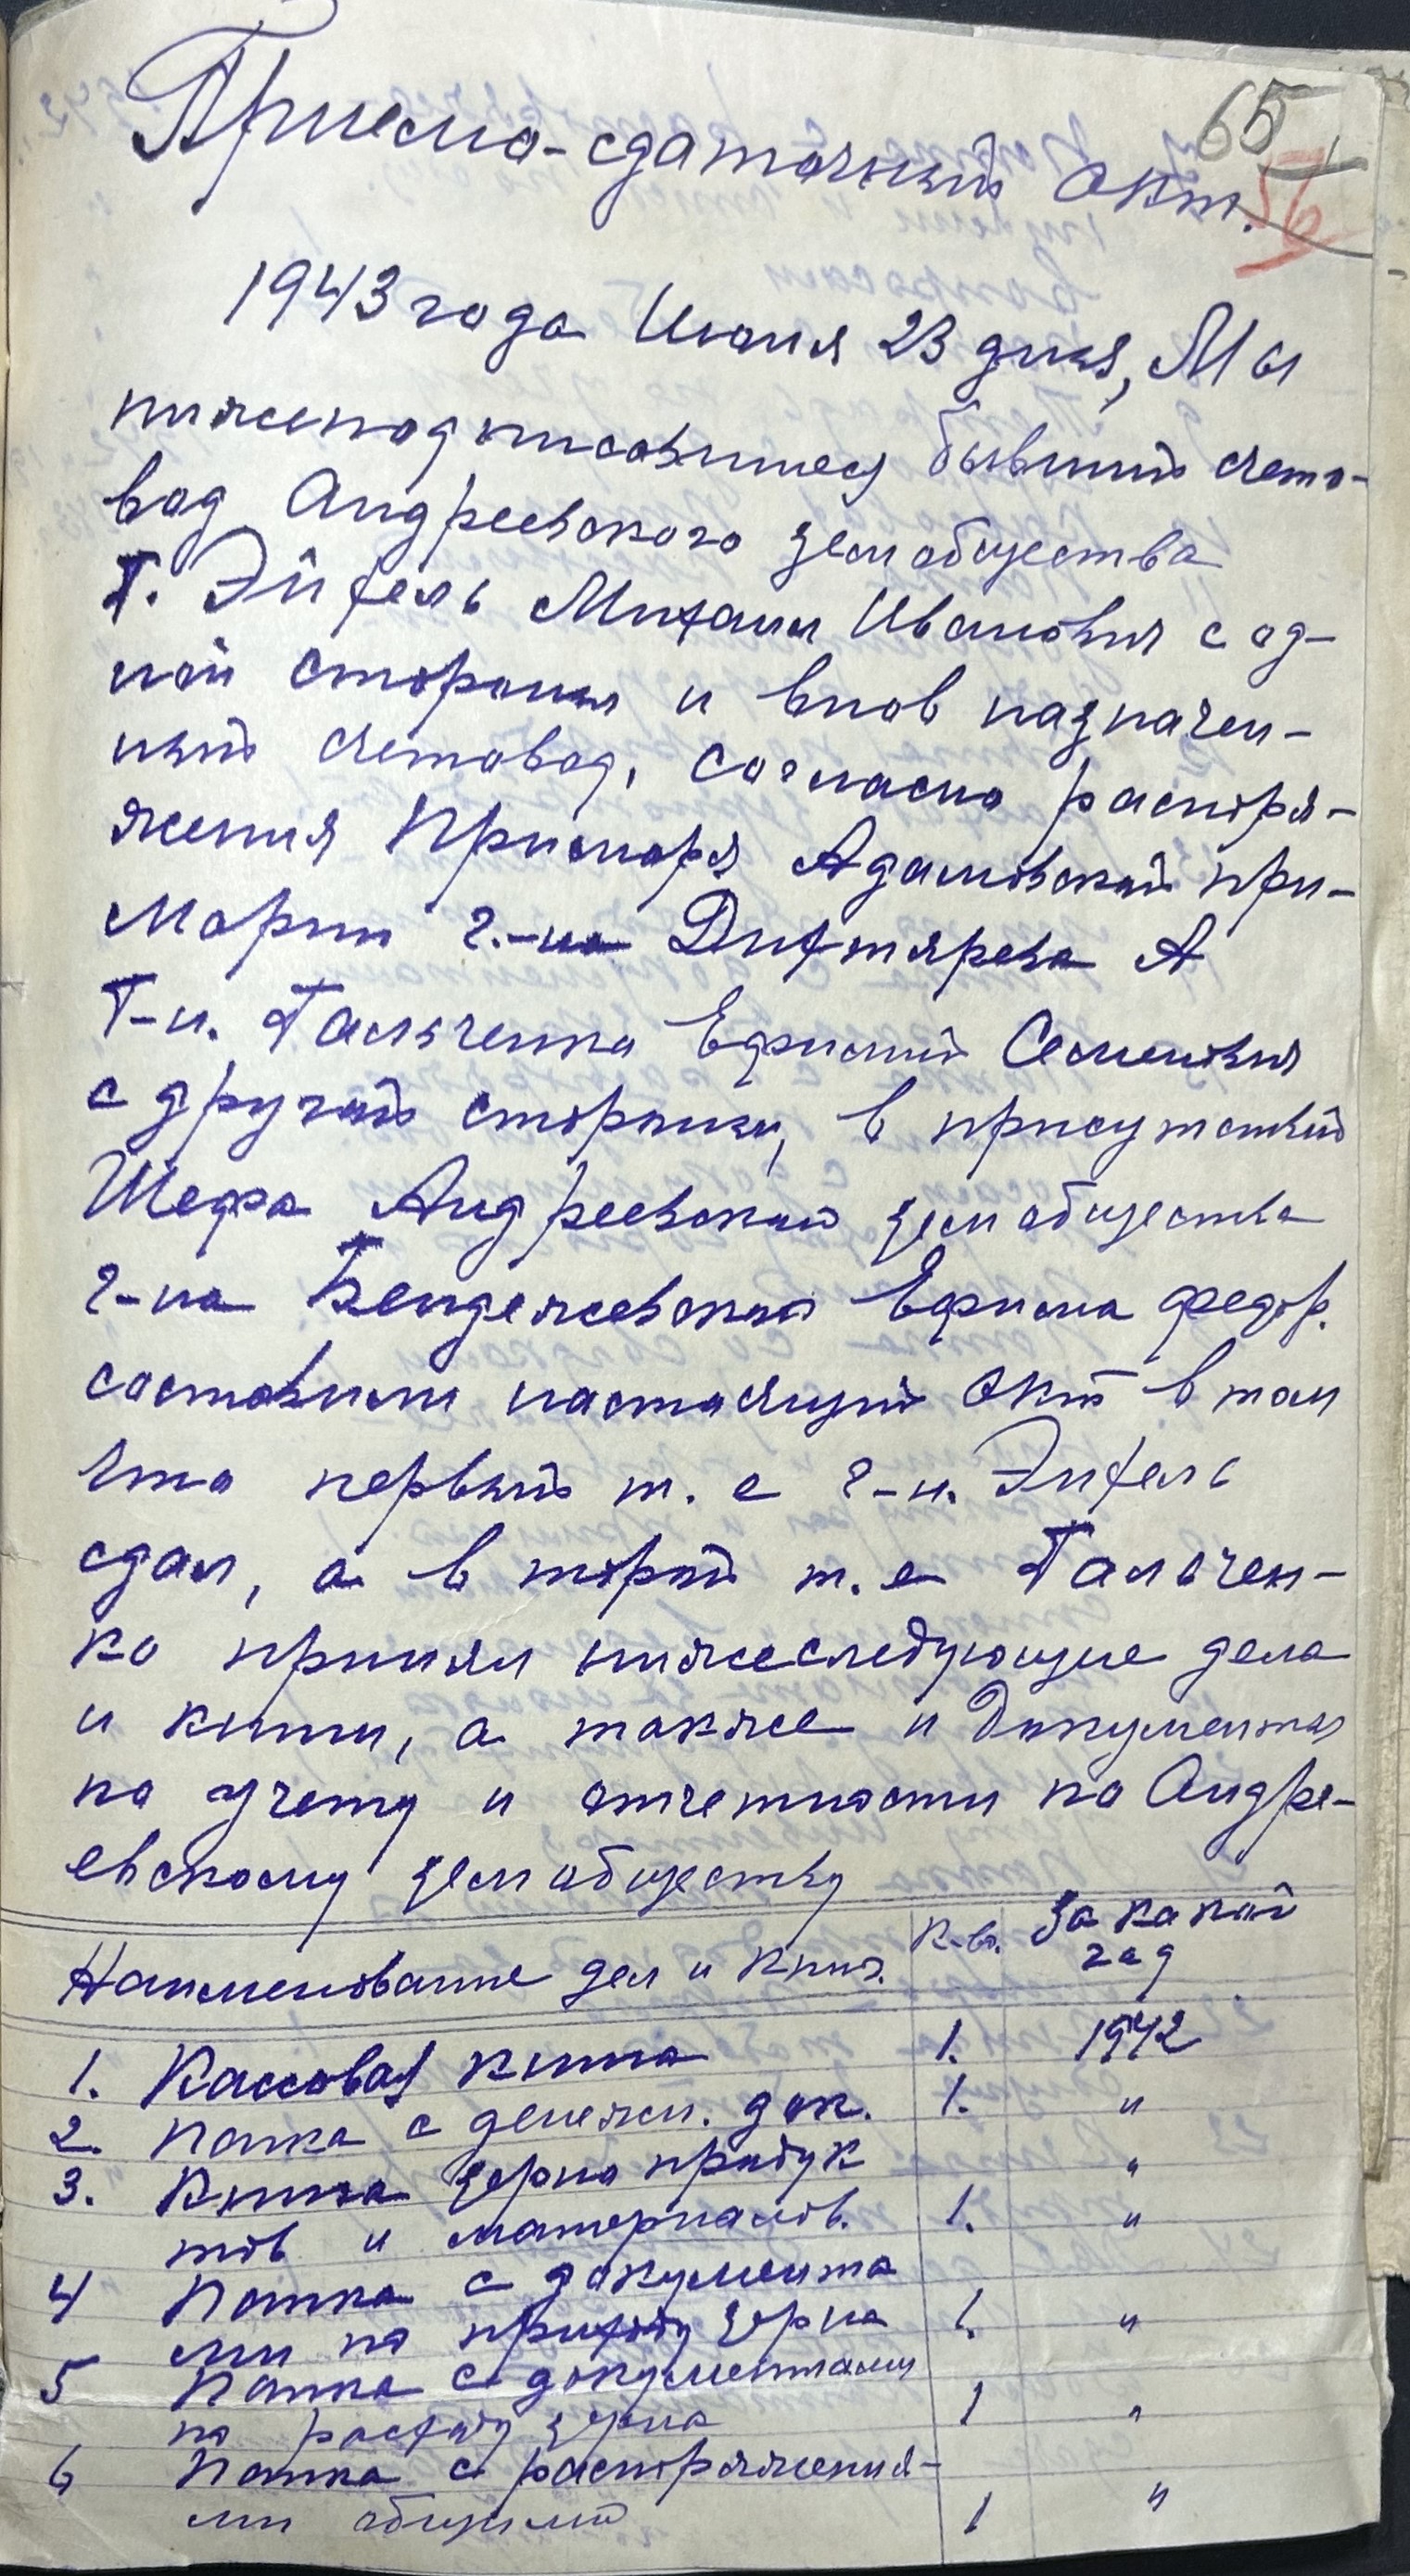 65
56
Приемо-сдаточный акт.
1943 года Июня 23 дня, Мы
нижеподписавшиеся бывший счето-
вод Андреевского земобщества
Г. Эйхель Михаил Иванович с од-
ной стороны и внов назначен-
ный счетовод, согласно распоря-
жения Примаря Адамовской при-
марии г.-на Дихтярева А
Г-н. Гальченко Ефимий Семенович
с другой стороны, в присутствий
Шефа Андреевской земобщества
г-на Бендежевский Ефима Федор.
составили настоящий акт в том
что первый т. е г-н. Эйхель
сдал, а в торой т. е Гальчен-
ко принял нижеследующие дела
и книги, а также и документы
по учету и отчетности по Андре-
евскому земобществу
Наименование дел и книг. К-во. За какой
год
1. Кассовая книга 1. 1942
2. Папка с денежн. док. 1. "
3. Книга зерна продук "
тов и материалов. 1. "
4 Папка с документа
ми по приходу зерна 1. "
5 Папка с документами
по расходу зерна 1 "
6 Папка с распоряжения-
ми общиной 1 "